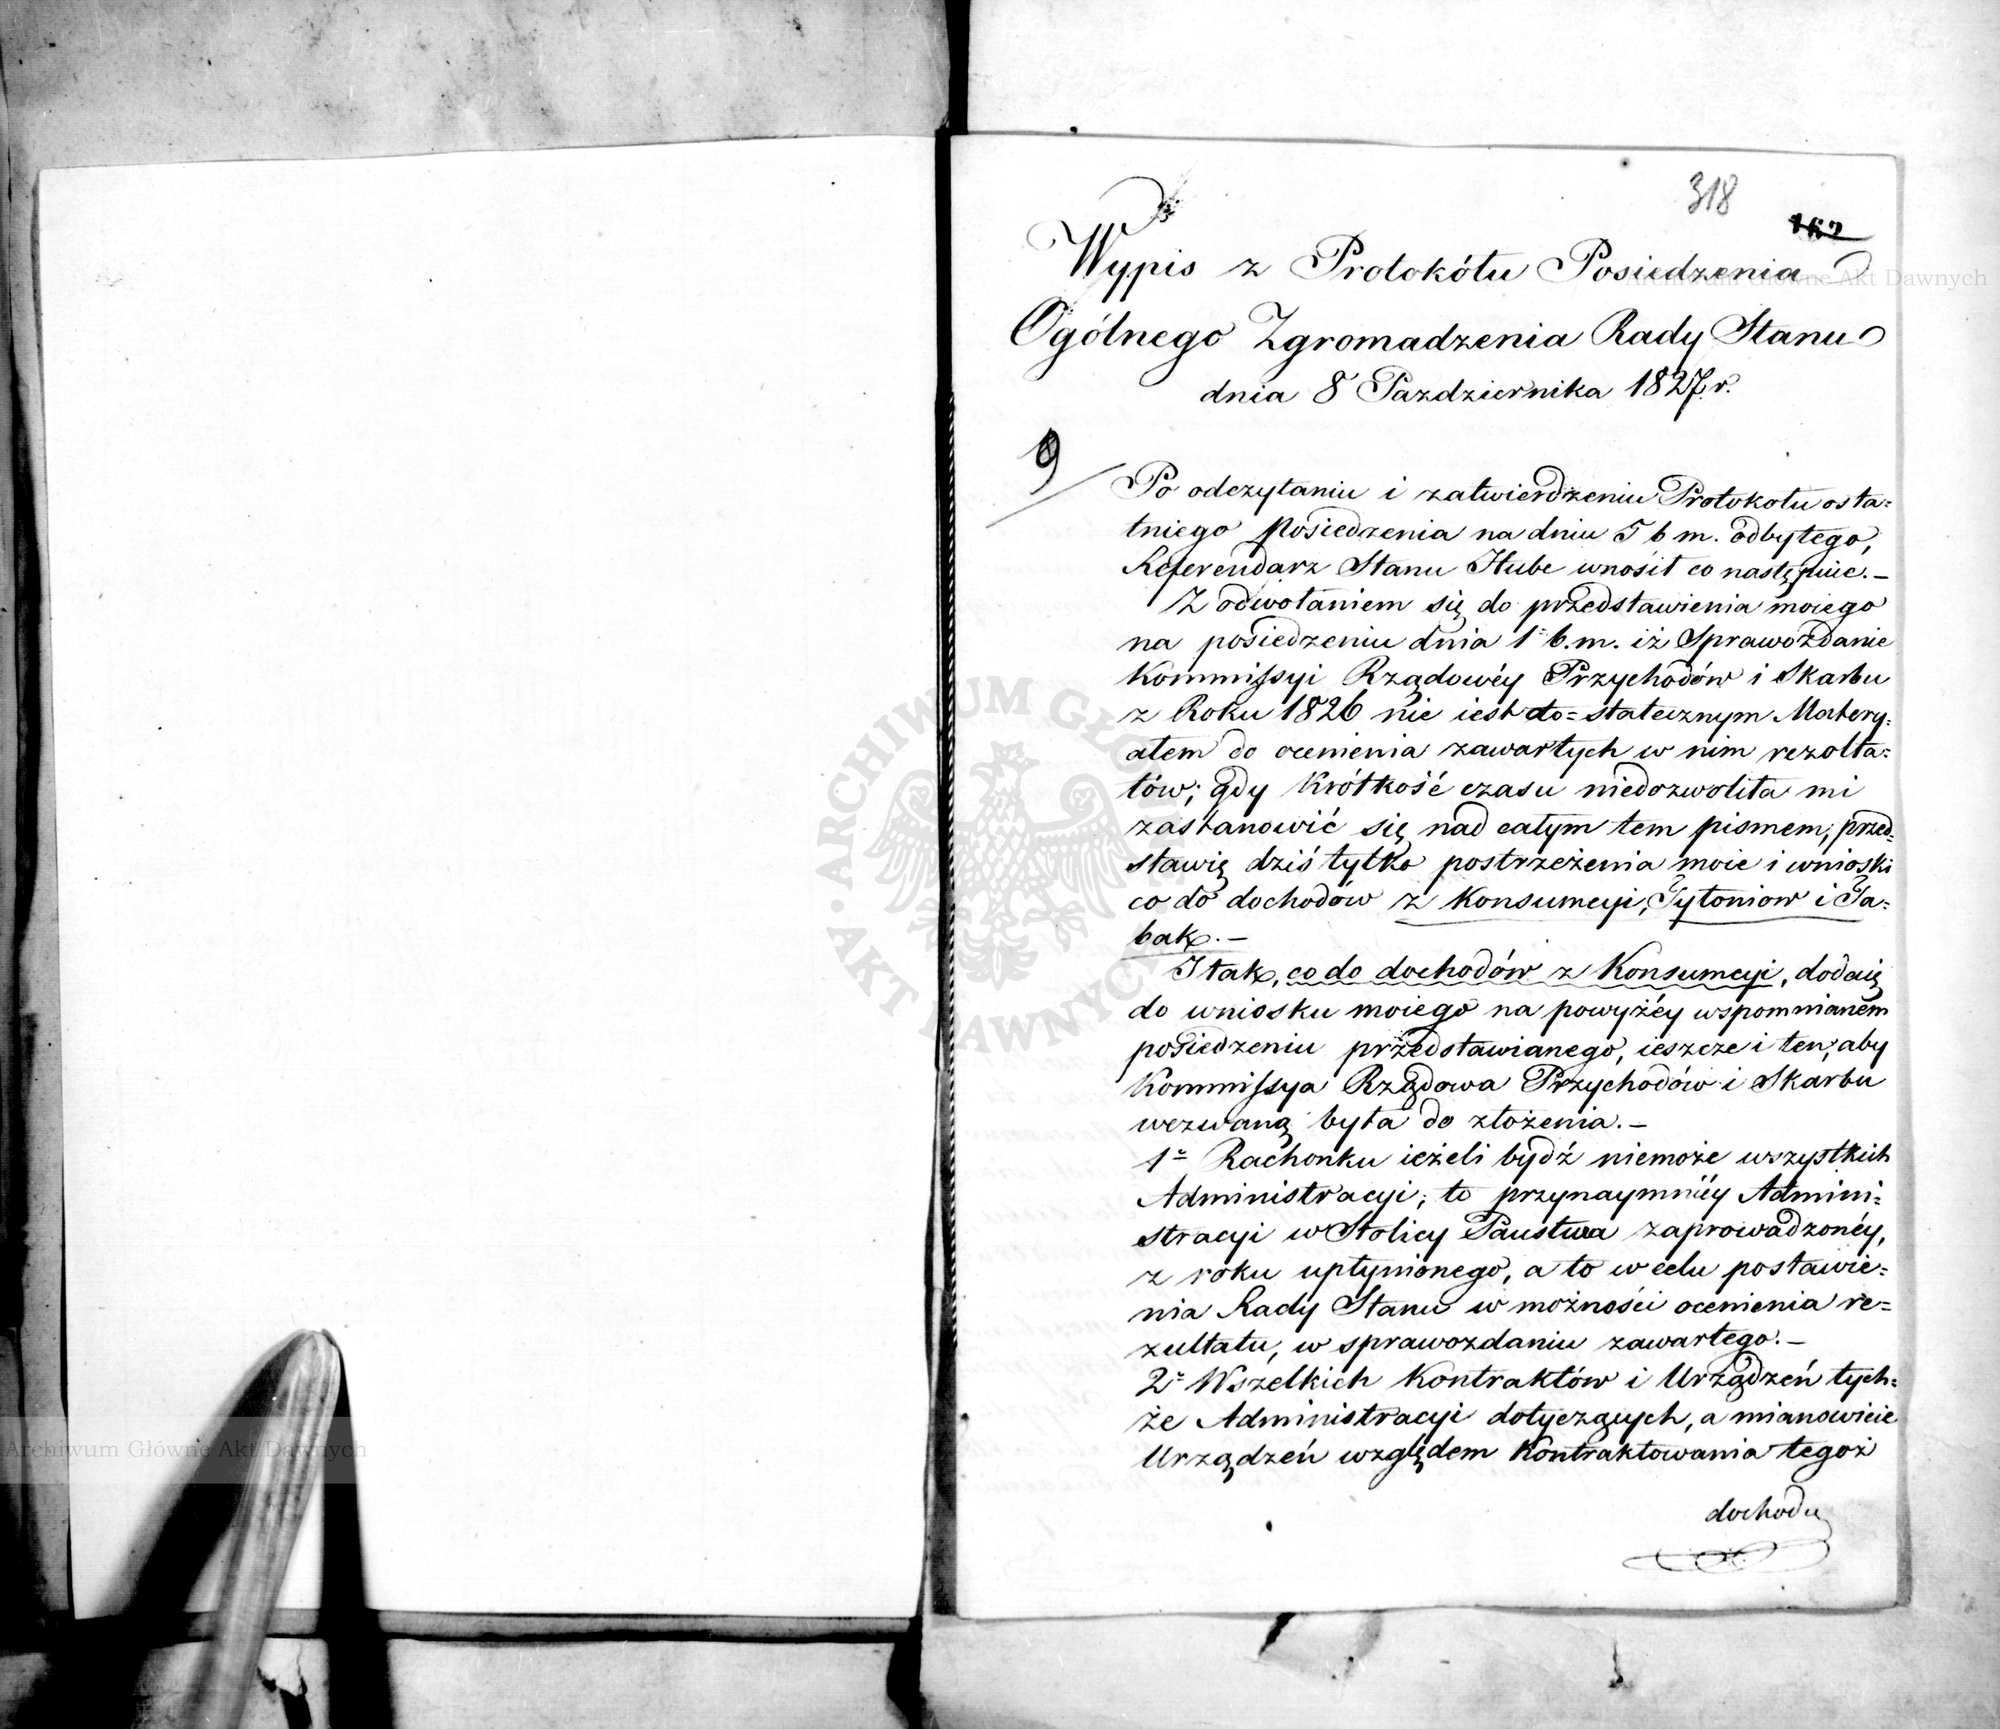 318
162
Wypis z Protokółu Posiedzenia
Ogólnego Zgromadzenia Rady Stanu
dnia 8 Pazdziernika 1827 r.
9
Po odczytaniu i zatwierdzeniu Protokołu osta=
tniego Posiedzenia na dniu 5 b m. odbytego,
Referendarz Stanu Hube wnosił co następuie.–
Z odwołaniem się do przedstawienia moiego
na posiedzeniu dnia 1º b.m. iż Sprawozdanie
Kommissyi Rządowéy Przychodów i Skarbu
z Roku 1826 nie iest do=statecznym Matery=
ałem do ocenienia zawartych w nim rezolta=
tów; gdy krótkość czasu niedozwoliła mi
zastanowić się nad całym tem pismem, przed=
stawię dziś tylko postrzeżenia moie i wnioski
co do dochodów z Konsumcyi, Tytoniow i Ta=
bak.–
I tak, co do dochodów z Konsumcyi, dodaię
do wniosku moiego na powyżéy wspomnianem
posiedzeniu przedstawianego, ieszcze i ten, aby
Kommissya Rządowa Przychodów i Skarbu
wezwaną była do złożenia.–
1º Rachonku ieżeli bydź niemoże wszystkich
Administracyi; to przynaymniéy Admini=
stracyi w Stolicy Państwa zaprowadzonéy,
z roku upłynionego, a to w celu postawie=
nia Rady Stanu w możności ocenienia re=
zultatu, w sprawozdaniu zawartego.–
2º Wszelkich Kontraktów i Urządzeń tych=
że Administracyi dotyczących, a mianowicie
Urządzeń względem Kontraktowania tegoż
dochodu
Archiwum Główne Akt Dawnych
Archiwum Główne Akt Dawnych
ARCHIWUM GŁÓWNE · AKT DAWNYCH ·